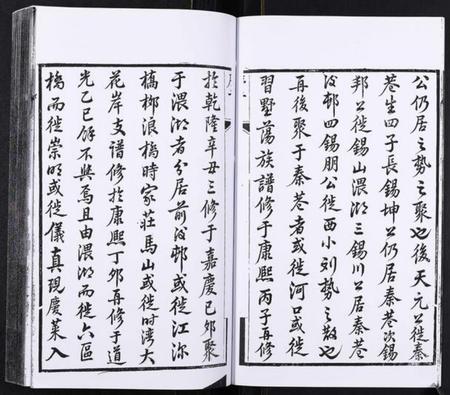 公仍居之勢之聚也後天元公徙秦
巷生四子長錫坤公仍居秦巷次錫
邦公徙錫山濕湖三錫川公居秦巷
汝邨四錫朋公徙西小刘勢之散也
再後聚于秦巷者或徙河口或徙
習墅蕩族譜修于康熙丙子再修
於乾隆辛丑三修于嘉慶己卯聚
于濕湖者分居前汝邨或徙江沵
槗梛浪槗時家莊馬山或徙时湾大
花岸支譜修於康熙丁卯再修于道
光乙巳餘不與焉且由濕湖而徙六區
槗而徙崇明或徙儀真現慶業入